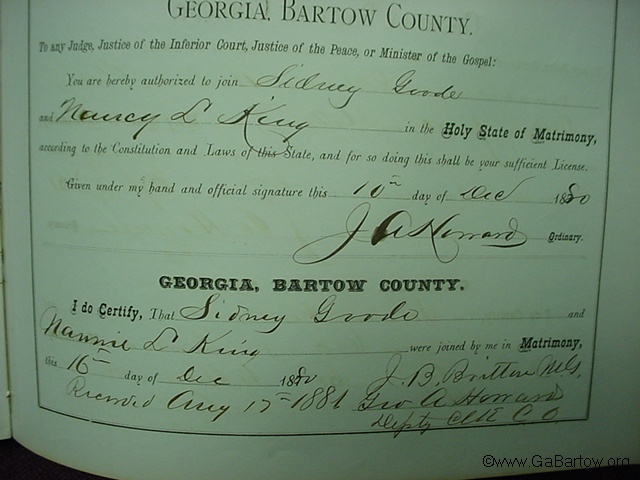 GEORGIA, BARTOW COUNTY.
To any Judge, Justice of the Inferior Court, Justice of the Peace, or Minister of the Gospel:
You are hereby authorized to join Sidney Goode
and Nancy L King in the Holy State of Matrimony,
according to the Constitution and Laws of this State, and for so doing this shall be your sufficient License.
Given under my hand and official signature this 10th day of Dec 1880
J A Howard Ordinary.
GEORGIA, BARTOW COUNTY.
I do Certify, That Sidney Goode and
Nannie L King were joined by me in Matrimony,
this 16th day of Dec 1880 J. B. Britton M.G.
Recorded Aug 17th 1881 Geo A Howard
Depty Clk C. O.
©www.GaBartow.org